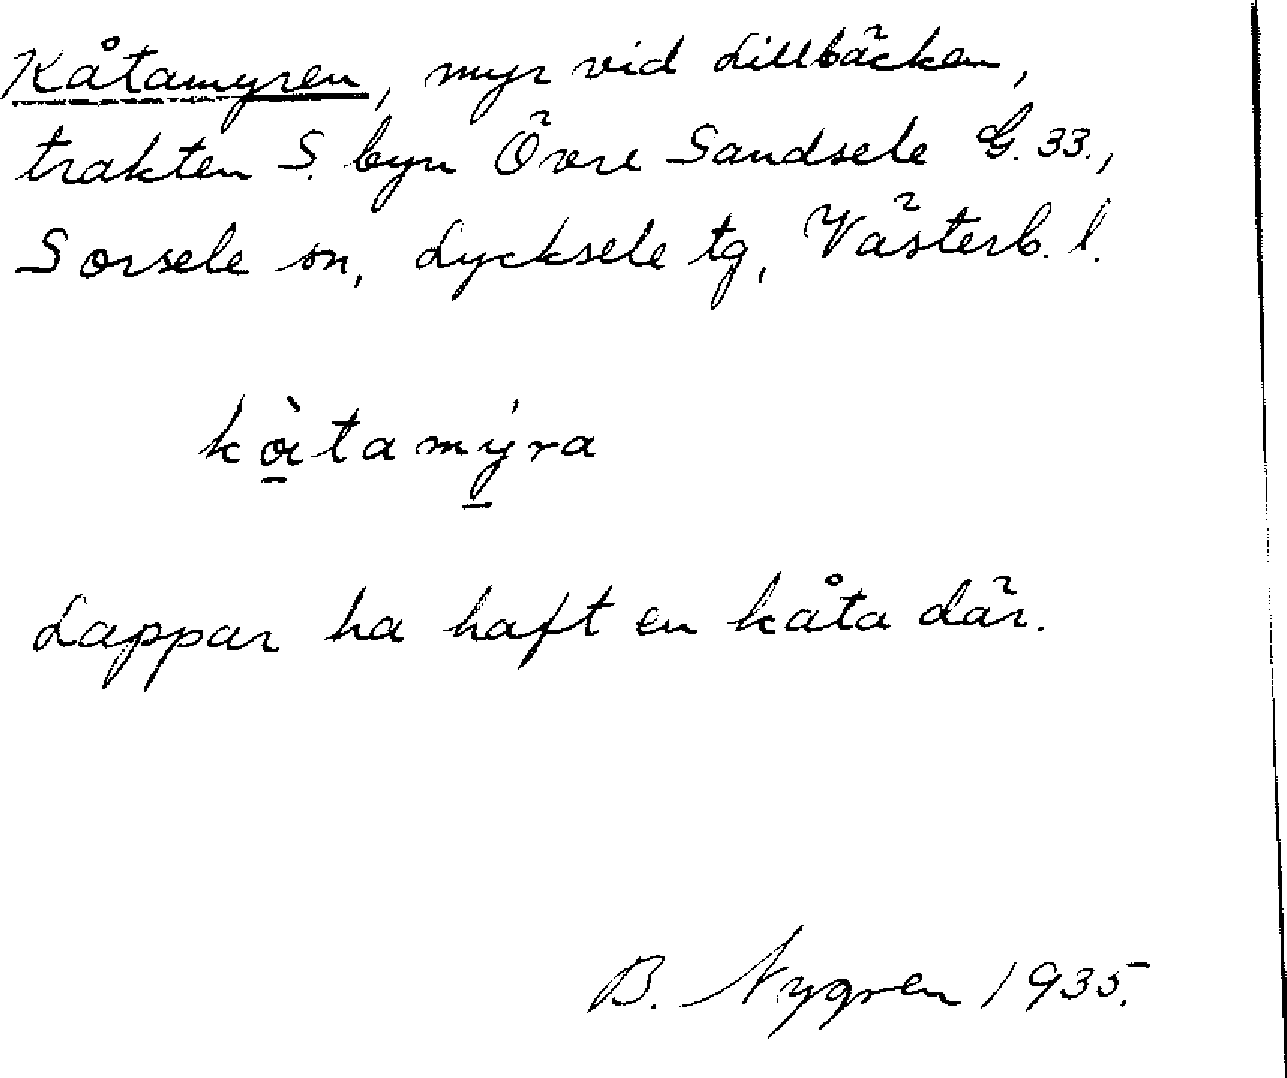 Kåtamyren, myr vid Lillbäcken,
trakten S. byn Övre Sandsele G. 33.,
Sorsele sn, Lycksele tg, Västerb. l.
kὰ̱tamý̱ra
Lappar ha haft en kåta där.
B. Nygren 1935.